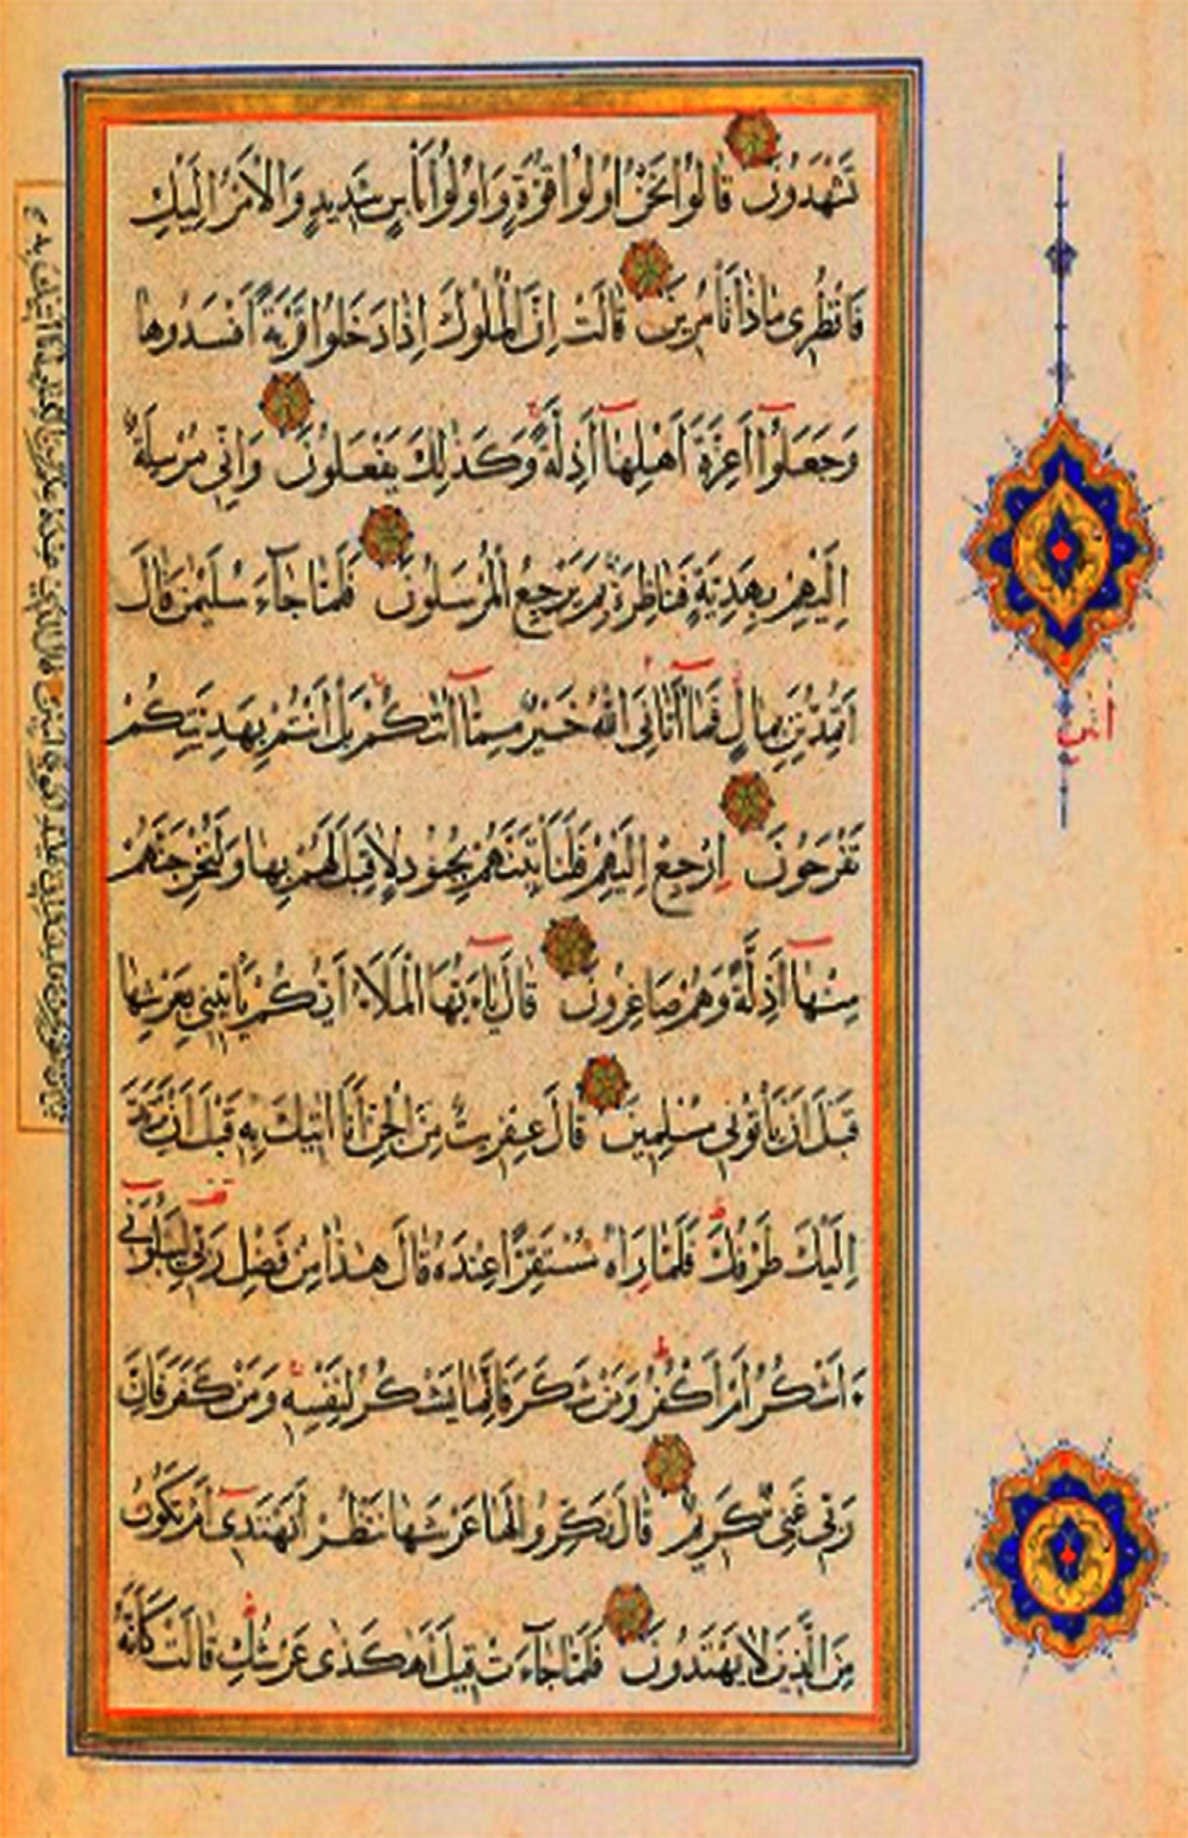 تَشْهَدُونَ قَالُوا نَحْنُ اُولُوا قُوَّةٍ وَاُولُوا بَأْسٍ شَدِيدٍ وَالْاَمْرُ اِلَيْكِ
فَانْظُرِى مَاذَا تَأْمُرِينَ قَالَتْ اِنَّ الْمُلُوكَ اِذَا دَخَلُوا قَرْيَةً اَفْسَدُوهَا
وَجَعَلُوا اَعِزَّةَ اَهْلِهَا اَذِلَّةً وَكَذٰلِكَ يَفْعَلُونَ وَاِنِّى مُرْسِلَةٌ
اِلَيْهِمْ بِهَدِيَّةٍ فَنَاظِرَةٌ بِمَ يَرْجِعُ الْمُرْسَلُونَ فَلَمَّا جَآءَ سُلَيْمٰنَ قَالَ
اَتُمِدُّونَنِ بِمَالٍ فَمَا اٰتَانِىَ اللّٰهُ خَيْرٌ مِمَّا اٰتٰكُمْ بَلْ اَنْتُمْ بِهَدِيَّتِكُمْ
تَفْرَحُونَ اِرْجِعْ اِلَيْهِمْ فَلَنَأْتِيَنَّهُمْ بِجُنُودٍ لَا قِبَلَ لَهُمْ بِهَا وَلَنُخْرِجَنَّهُمْ
مِنْهَا اَذِلَّةً وَهُمْ صَاغِرُونَ قَالَ يَاءَيُّهَا الْمَلَأُ اَيُّكُمْ يَأْتِينِى بِعَرْشِهَا
قَبْلَ اَنْ يَأْتُونِى مُسْلِمِينَ قَالَ عِفْرِيتٌ مِنَ الْجِنِّ اَنَا اٰتِيكَ بِهِ قَبْلَ اَنْ يَرْتَدَّ
اِلَيْكَ طَرْفُكَ فَلَمَّا رَاٰهُ مُسْتَقِرًّا عِنْدَهُ قَالَ هٰذَا مِنْ فَضْلِ رَبِّى لِيَبْلُوَنِى
ءَاَشْكُرُ اَمْ اَكْفُرُ وَمَنْ شَكَرَ فَاِنَّمَا يَشْكُرُ لِنَفْسِهِ وَمَنْ كَفَرَ فَاِنَّ
رَبِّى غَنِىٌّ كَرِيمٌ قَالَ نَكِّرُوا لَهَا عَرْشَهَا نَنْظُرْ اَتَهْتَدِى اَمْ تَكُونُ
مِنَ الَّذِينَ لَا يَهْتَدُونَ فَلَمَّا جَآءَتْ قِيلَ اَهٰكَذٰى عَرْشُكِ قَالَتْ كَاَنَّهُ
اتٰنِ
تقوم من مقامك وانى عليه لقوى امين قال الذى عنده علم من الكتاب انا اتيك به